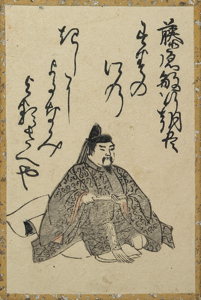 藤原敏行朝臣
すみの
江の
きしに
よるなみ
よるさへや